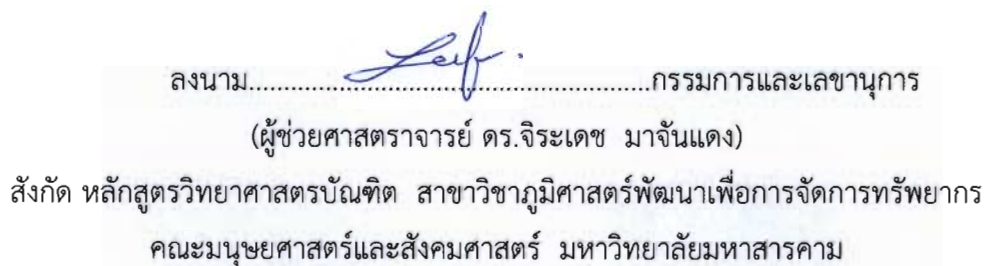 ลงนาม............................................................กรรมการและเลขานุการ
(ผู้ช่วยศาสตราจารย์ ดร.จิระเดช มาจันแดง)
สังกัด หลักสูตรวิทยาศาสตรบัณฑิต สาขาวิชาภูมิศาสตร์พัฒนาเพื่อการจัดการทรัพยากร
คณะมนุษยศาสตร์และสังคมศาสตร์ มหาวิทยาลัยมหาสารคาม